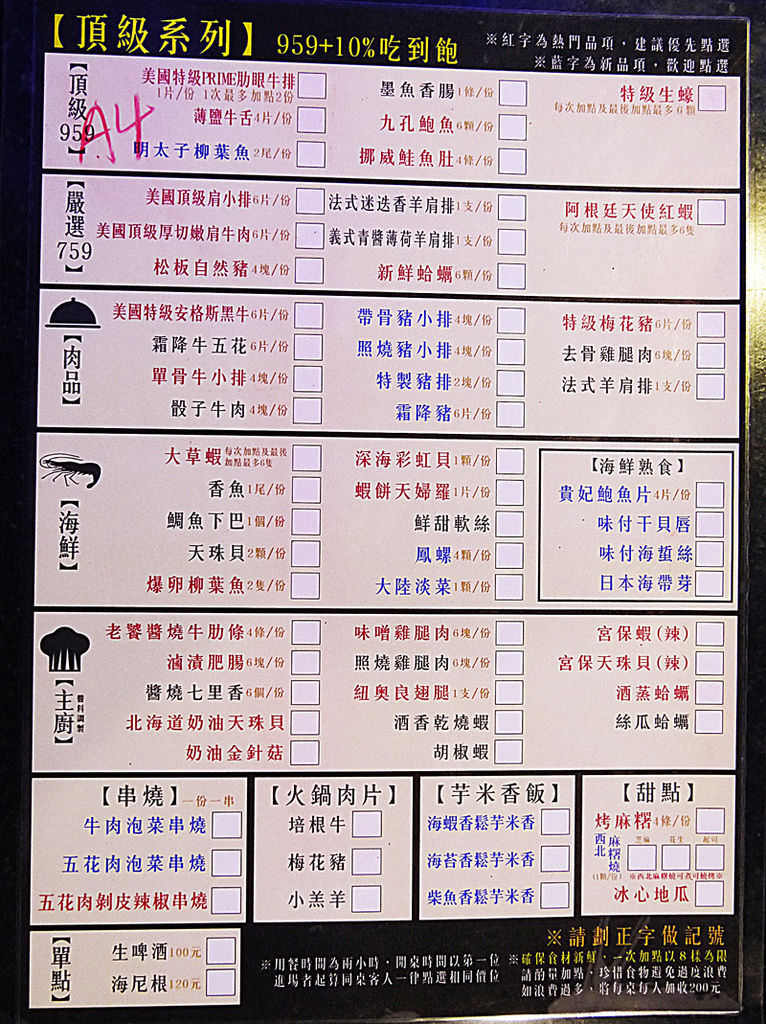 【頂級系列】 959+10%吃到飽
※紅字為熱門品項，建議優先點選
※藍字為新品項，歡迎點選
【頂級959】
A4
美國特級PRIME肋眼牛排
1片/份 1次最多加點2份
薄鹽牛舌4片/份
明太子柳葉魚2尾/份
墨魚香腸1條/份
九孔鮑魚6顆/份
挪威鮭魚肚4條/份
特級生蠔
每次加點及最後加點最多6顆
【嚴選759】
美國頂級肩小排6片/份
美國頂級厚切嫩肩牛肉6片/份
松板自然豬4塊/份
法式迷迭香羊肩排1支/份
義式青醬薄荷羊肩排1支/份
新鮮蛤蠣6顆/份
阿根廷天使紅蝦
每次加點及最後加點最多6隻
【肉品】
美國特級安格斯黑牛6片/份
霜降牛五花6片/份
單骨牛小排4塊/份
骰子牛肉4塊/份
帶骨豬小排4塊/份
照燒豬小排4塊/份
特製豬排2塊/份
霜降豬6片/份
特級梅花豬6片/份
去骨雞腿肉6塊/份
法式羊肩排1支/份
【海鮮】
大草蝦每次加點及最後
加點最多6隻
香魚1尾/份
鯛魚下巴1個/份
天珠貝2顆/份
爆卵柳葉魚2隻/份
深海彩虹貝1顆/份
蝦餅天婦羅1片/份
鮮甜軟絲
鳳螺4顆/份
大陸淡菜1顆/份
【海鮮熟食】
貴妃鮑魚片4片/份
味付干貝唇
味付海蜇絲
日本海帶芽
【主廚】
醬料調製
老饕醬燒牛肋條4條/份
滷漬肥腸6塊/份
醬燒七里香6個/份
北海道奶油天珠貝
奶油金針菇
味噌雞腿肉6塊/份
照燒雞腿肉6塊/份
紐奧良翅腿1支/份
酒香乾燒蝦
胡椒蝦
宮保蝦(辣)
宮保天珠貝(辣)
酒蒸蛤蠣
絲瓜蛤蠣
【串燒】一份一串
牛肉泡菜串燒
五花肉泡菜串燒
五花肉剝皮辣椒串燒
【火鍋肉片】
培根牛
梅花豬
小羔羊
【芋米香飯】
海蝦香鬆芋米香
海苔香鬆芋米香
柴魚香鬆芋米香
【甜點】
烤麻糬4條/份
西北麻糬燒
(1顆/份)
芝麻 花生 起司
※西北麻糬燒可煮可燒烤※
冰心地瓜
【單點】
生啤酒100元
海尼根120元
※請劃正字做記號
※用餐時間為兩小時，開桌時間以第一位
進場者起算同桌客人一律點選相同價位
※確保食材新鮮，一次加點以8樣為限
請酌量加點，珍惜食物避免過度浪費
如浪費過多，將每桌每人加收200元